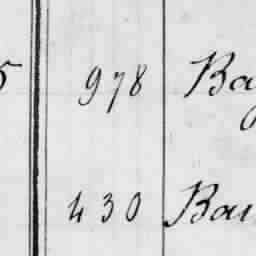 5 978 Bay
430 Bau